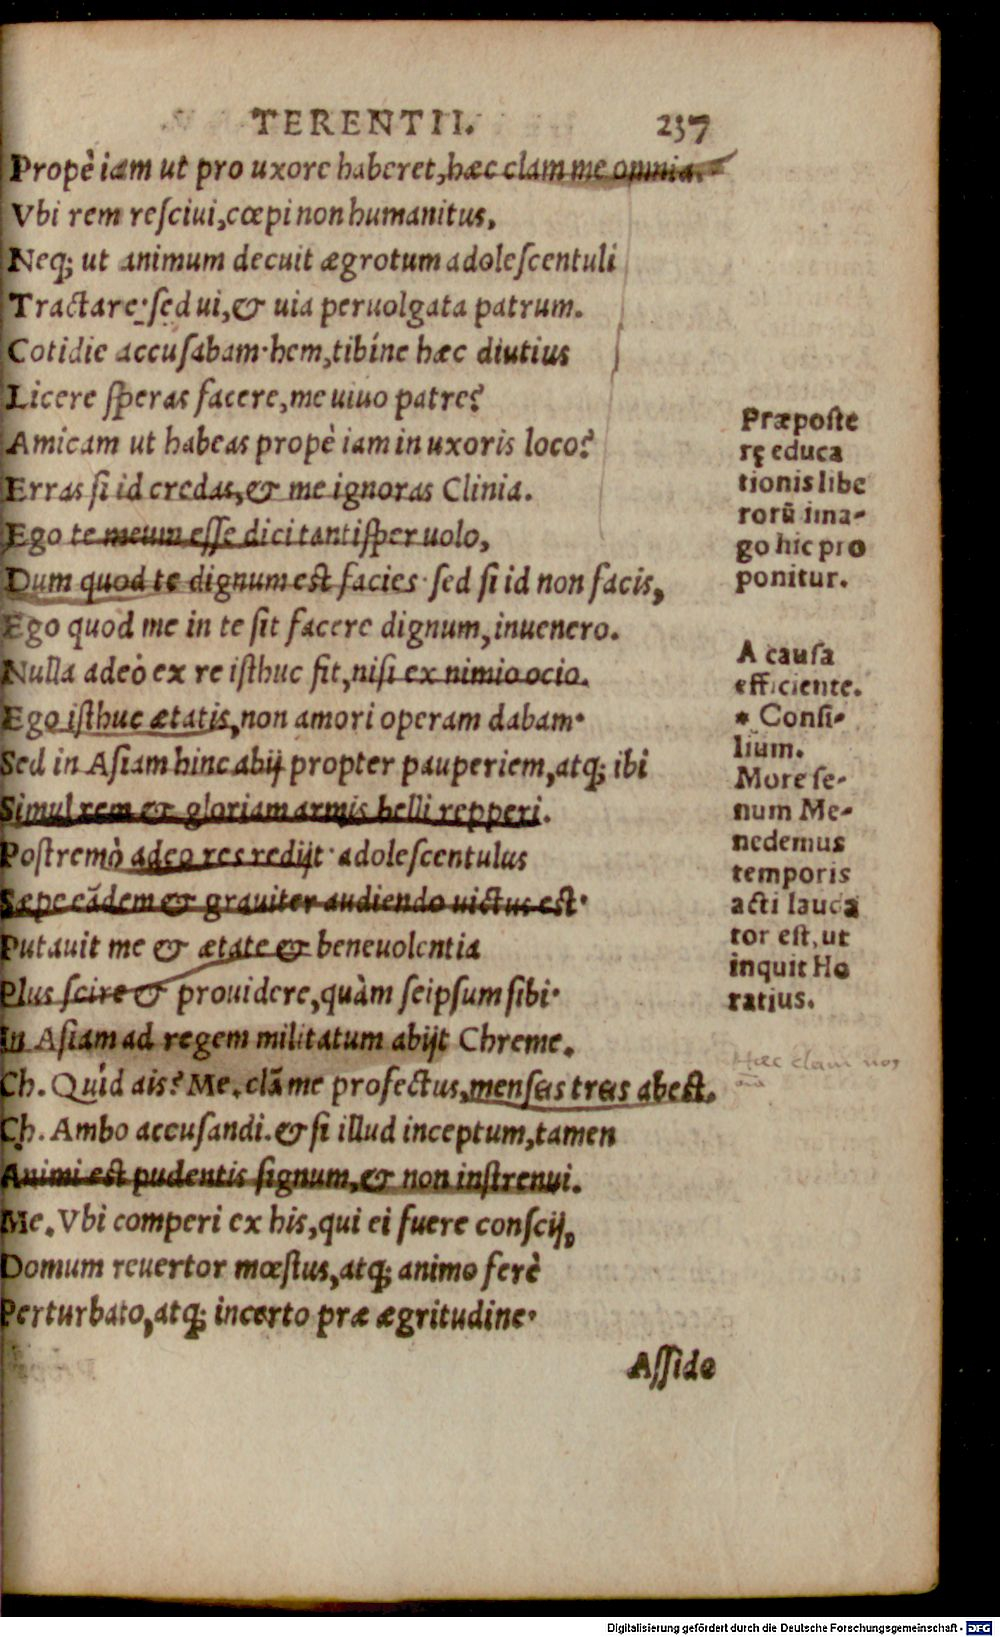 TERENTII. 237
Propè iam ut pro uxore haberet, hæc clam me omnia.
Vbi rem resciui, cœpi non humanitus,
Neq; ut animum decuit ægrotum adolescentuli
Tractare· sed ui, & uia peruolgata patrum.
Cotidie accusabam· hem, tibíne hæc diutius
Licere speras facere, me uiuo patre?
Amicam ut habeas propè iam in uxoris loco?
Erras si id credas, & me ignoras Clinia.
Ego te meum esse dici tantisper uolo,
Dum quod te dignum est facies· sed si id non facis,
Ego quod me in te sit facere dignum, inuenero.
Nulla adeò ex re isthuc fit, nisi ex nimio ocio.
Ego isthuc ætatis, non amori operam dabam·
Sed in Asiam hinc abij propter pauperiem, atq; ibi
Simul rem & gloriam armis belli repperi.
Postremò adeo res redijt· adolescentulus
Sæpe eādem & grauiter audiendo uictus est·
Putauit me & ætate & beneuolentia
Plus scire & prouidere, quàm seipsum sibi·
In Asiam ad regem militatum abijt Chreme.
Ch. Quid ais? Me. clā me profectus, menseis treis abest.
Ch. Ambo accusandi. & si illud inceptum, tamen
Animi est pudentis signum, & non instrenui.
Me. Vbi comperi ex his, qui ei fuere conscij,
Domum reuertor mœstus, atq; animo ferè
Perturbato, atq; incerto præ ægritudine·
Asside
Præposte
rę educa
tionis libe
rorū ima-
go hic pro
ponitur.
A causa
efficiente.
* Consi-
lium.
More se-
num Me-
nedemus
temporis
acti lauda
tor est, ut
inquit Ho
ratius.
Hæc clam nos
Digitalisierung gefördert durch die Deutsche Forschungsgemeinschaft - DFG